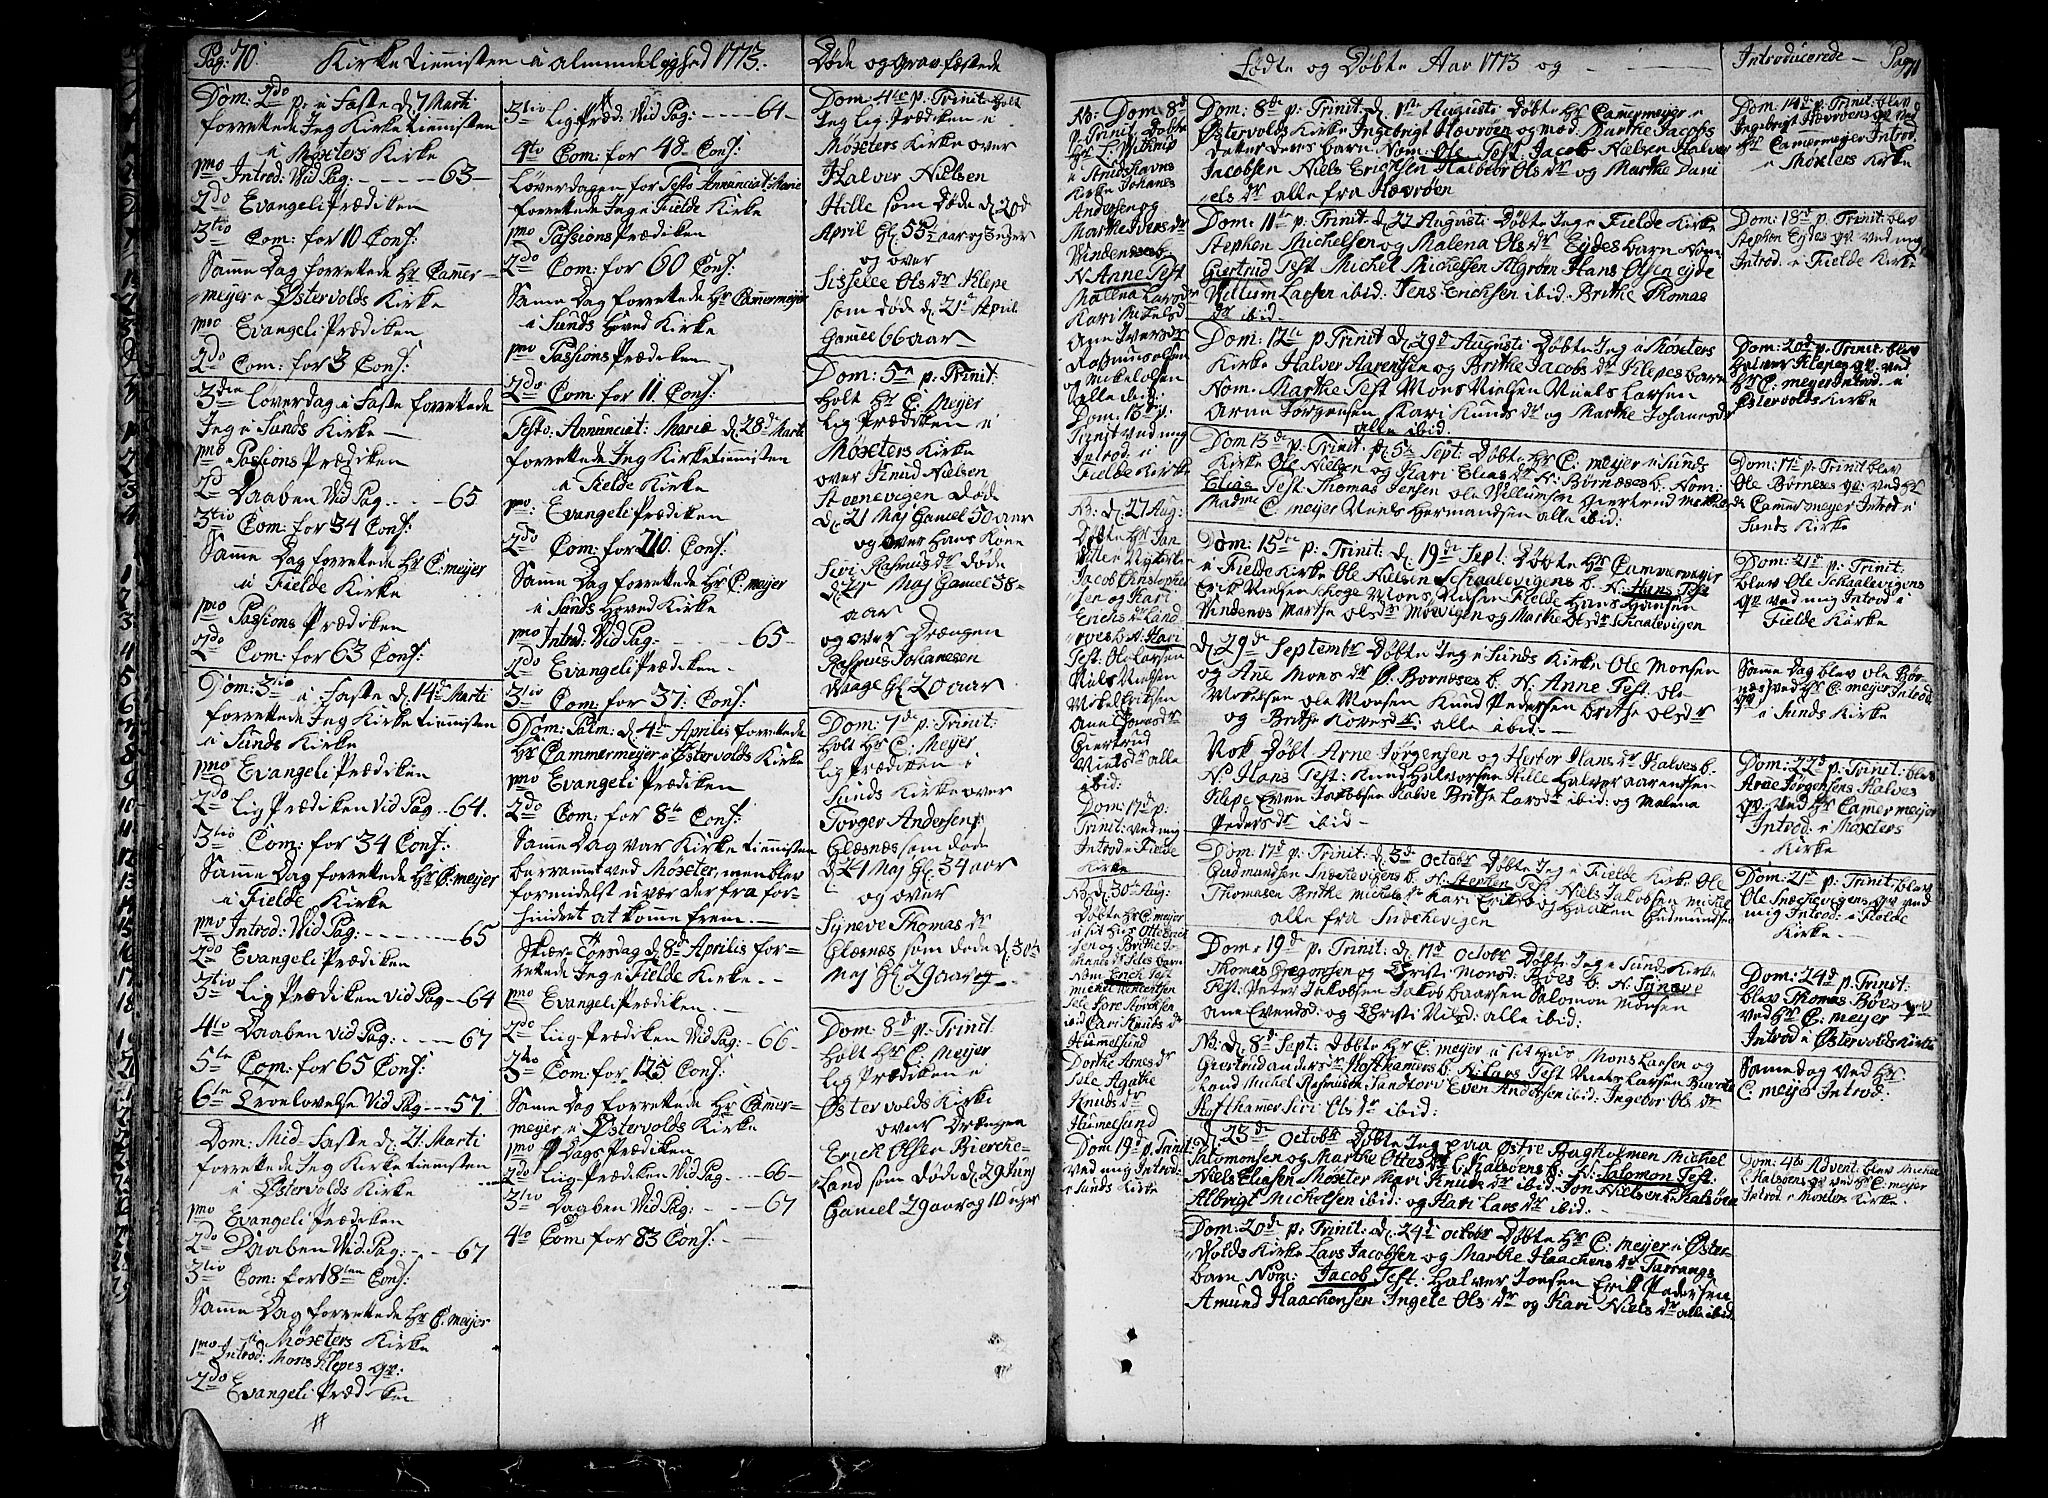 Pag: 70. Kirketienisten i almindelighed 1773.
Døde og Gravfæstede
Dom: 2do p: i Faste d. 7 Marti
forrettede Jeg Kirketienisten
i Møxters Kirke
pmo Introd: Vid Pag: - - - 63 -
2do Evangeli Prædiken
3tio Com: for 10 Conf:
Samme Dag forrettede Hr Cammer-
meyer i Østervolds Kirke
pmo Evangeli Prædiken
2do Com: for 3 Conf:
3die Løverdag i Faste forrettede
Jeg i Sunds Kirke -
pmo Passions Prædiken
2d Daaben Vid Pag - - - 65
3tio Com: for 34 Conf:
Samme Dag forrettede Hr C: meijer
i Fielde Kirke
pmo Passions Prædiken
2do Com: for 63 Conf:
Dom: 3tio i Faste d. 14de Marti
forrettede Jeg Kirketienisten
i Sunds Kirke
pmo Evangeli Prædiken
2do Lig Prædiken Vid Pag - - 64.
3tio Com: for 34 Conf:
Samme Dag forrettede Hr C: meijer
i Fielde Kirke
pmo Introd: Vid Pag: - - - 65
2do Evangeli Prædiken
3tio Lig Prædiken Vid Pag - - 64
4to Daaben Vid Pag: - - - 67
5te Com: for 65 Conf:
6te Troelovelse Vid Pag - - - 57.
Dom: Mid-Faste d. 21 Marti
forrettede Jeg Kirketienisten
i Østervolds Kirke
pmo Evangeli Prædiken
2do Daaben Vid Pag: - - - 67
3tio Com: for 18ten Conf:
Samme Dag forrettede Hr C: meijer
i Møxters Kirke
pmo Introd: Mons Klepes qv:
2do Evangeli Prædiken
3tio Lig Præd: Vid Pag: - - - 64
4to Com: for 48 Conf:
Løverdagen for Festo Annunciat: Mariæ
forrettede Jeg i Fielde Kirke
pmo Passions Prædiken
2do Com: for 60 Conf:
Samme Dag forrettede Hr Cammermeijer
i Sunds Hoved Kirke
pmo Passions Prædiken
2do Com: for 11 Conf:
Festo: Annunciat: Mariæ d. 28de Marti
forrettede Jeg Kirketienisten
i Fielde Kirke
pmo: Evangeli Prædiken
2do Com: for 210 Conf:
Samme Dag forrettede Hr C: meijer
i Sunds Hoved Kirke
pmo Introd: Vid Pag: - - - 65 -
2do Evangeli Prædiken -
3tio Com: for 37: Conf:
Dom: Palm: d. 4de Aprilis forrettede
Hr Cammermeijer i Østervolds Kirke
pmo Evangeli Prædiken
2do Com: for 8te Conf:
Samme Dag var Kirketienisten
berammet ved Møxter, men blev
formidelst uvær derfra for-
hindret at kome frem. -
Skær-Torsdag d. 8de Aprilis for-
rettede Jeg i Fielde Kirke. -
pmo Evangeli Prædiken. -
2do Liig-Prædiken Vid Pag: - - 66 -
3tio Com: for 125 Conf:
Samme Dag forrettede Hr Cammer-
meyer i Østervolds Kirke
pmo Dags Prædiken
2do Liig-Prædiken Vid Pag - - - 66 -
3tio Daaben Vid Pag: - - - 67
4to Com: for 83 Conf: -
Dom: 4de p: Trinit: Holt
Jeg Lig Prædiken i
Møxters Kirke over
Halver Nielsen
Hille som Døde d. 20d
April Gl: 55 aar og 3 uger
og over
Sisselle Olsdr Klepe
som døde d. 21d April
Gamel 66 aar
Dom: 5te p: Trinit:
Holt Hr C: Meijer
Lig Prædiken i
Møxters Kirke
over Knud Nielsen
Steenevigen Død
d. 21 Maj Gamel 50 aar
og over Hans Kone
Siri Rasmusdr døde
d. 21 Maj Gamel 58-
aar
og over Drængen
Rasmus Johanesen
Waage Gl: 20 aar
Dom: 7de p: Trinit:
Holt Hr C: Meijer
Lig Prædiken i
Sunds Kirke over
Torger Andersen
Glesnæs som døde
d. 24 Maj Gl: 34 aar
og over
Syneve Thomasdr
Glesnes som døde d. 30te
Maj Gl: 29 aar og -
Dom: 8de p: Trinit.
Holt Hr C: Meijer
Lig Prædiken i
Østervolds Kirke
over Drængen
Erich Olsen Bierche-
Land som Døde d. 29 Junij
Gamel 29 aar og 10 uger
Fødte og Døbte Aar 1773 og - - - Introducerede - Pag 71
NB: Dom: 8d
p: Trinit Døbte
i Sundshavns
Kirke Johanes
Andersen og
Marthe Iversdr
Vindenes b.
N: Anne Test
Mallena Larsdr
Kari Mikelsd
Ane Iversdr
Rasmus Olsen
og Mikel Olsen
alle ibid:
Dom: 13d p:
Trinit ved mig
Introd: i
Fielde Kirke
NB: d. 27 Aug:
Døbte Hr Jan
Jacob Christophe
sen og Kari
Erichsdr Land
roes b: N: Kari
Test: Ole Larsen
Niels Nielsen
Mikel Eriksen
Giertrud
Nielsdr alle
ibid:
Dom: 17d p:
Trinit: ved mig
Introd i Fielde
Kirke
NB: d. 30te Aug:
Døbte Hr C: meijer
i sit Hus Otte Erich
sen og Brithe Jo-
hanesdr Teles barn
Nom: Erich Test
Michel Vincentsen
ibid Cari Knudsdr
Hummelsund
Dorthe Arnesdr
Tele Agathe
Knudsdr
Humelsund
Dom 19d p: Trinit:
ved mig Introd:
i Sunds Kirke
Dom: 8de p: Trinit: d. 1ste Augusti Døbte Hr Cammermeijer i
Østervolds Kirke Ingebrigt Hævrøen og mod: Marthe Jacobs
datter deres barn: Nom: Ole Test: Jacob Nielsen Halver
Jacobsen Niels Erichsen Halbør Olsdr og Marthe Dani
elsdr alle fra Hævrøen
Dom: 11te p: Trinit: d. 22 Augusti Døbte Jeg i Fielde Kirke
Stephen Michelsen og Malena Olsdr Eydes barn Nom:
Giertrud Test Michel Michelsen Algrøen Hans Olsen Eyde
Willum Larsen ibid: Jens Erichsen ibid: Brithe Thomas
dr ibid. -
Dom: 12te p: Trinit d. 29d Augusti Døbte Jeg i Møxters
Kirke Halver Aarentsen og Brithe Jacobsdr Klepes barn
Nom. Marthe Test Mons Nielsen Niels Larsen
Arne Jørgensen Kari Knudsdr og Marthe Johanesdr
alle ibid.
Dom 13de p: Trinit: d. 5te Sept: Døbte Hr C: meijer i Sunds
Kirke Ole Nielsen og Kari Eliasdr N: Børnæses b: Nom:
Elias Test: Thomas Jensen Ole Villumsen Giertrud
Madme C: meijer Niels Hermandsen alle ibid:
Dom: 15te p: Trinit: d. 19de Sept: Døbte Hr Cammermeijer
i Fielde Kirke Ole Nielsen Schaalevigens b: N: Hans Test
Erik Nielsen Schoge Mons Nielsen Fielde Hans Hansen
Vindenes Marthe Olsdr Møevigen og Marthe Olsdr Schaalevigen
d. 29de Septembr Døbte Jeg i Sunds Kirke Ole Monsen
og Ane Monsdr Ø: Bornæses b: N: Anne Test Ole
Mikelsen Ole Monsen Knud Pedersen Brithe Olsdr
og Brithe Koresdr: alle ibid. -
Nok Døbt Arne Jørgensen og Herbor Hansdr Kalves b:
N: Hans Test: Knud Halvorsen Hille Halver Aarentsen
Klepe Even Jakobsen Kalve Brithe Larsdr ibid: og Malena
Pedersdr ibid -
Dom: 17d p: Trinit: d. 3d Octobr Døbte Jeg i Fielde Kirke Ole
Gudmundsen Snækevigens b: N: Stephen Test Niels Jakobsen Michel
Thomasen Brithe Michelsdr Kari Eriksd og Haaken Gudmundsen
alle fra Snækevigen
Dom: 19d p: Trinit: d. 17d Octobr Døbte Jeg i Sunds Kirke
Thomas Gregorsen og Christi Monsd: Bøes b: N: Syneve
Test: Peter Jakobsen Jakob Baarsen Salomon Monsen
Ane Evensd: og Christi Nilsd: alle ibid:
NB: d. 8d Sept: Døbte Hr C: meijer i sit Hus Mons Larsen og
Giertrud Andersdr Hofthamers b: N: Lars Test Niels Larsen
Rand Michel Rasmusen Sandtorv Even Andersen ibid: Ingebor Olsdr
Hofthammer Siri Olsdr ibid:
d. 23de Octobr Døbte Jeg paa Østre Bagholmen Michel
Salomonsen og Marthe Ottesdr L: Kalsøens b: N: Salomon Test:
Niels Eliasen Møxter Mari Knudsdr ibid: Jon Nielsen L: Kalsøen
Albrigt Michelsen ibid: og Kari Larsdr ibid: -
Dom: 20d p: Trinit: d. 24de Octobr Døbte Hr C: meijer i Øster-
Volds Kirke Lars Jacobsen og Marthe Haachensdr Turrangs
barn Nom: Jacob Test: Halver Jonsen Erik Pedersen
Amund Haachensen Ingele Olsdr og Kari Nielsdr alle ibid
Dom: 14de p: Trinit: blev
Ingebrigt Hævrøens qv ved
Hr Cammermeijer Introd
i Møxters Kirke
Dom: 18d p: Trinit: blev
Stephen Eydes qv ved mig
Introd: i Fielde Kirke
Dom: 20d p: Trinit: blev
Halver Klepes qv: ved
Hr C: meijer Introd: i
Østervolds Kirke
Dom: 17d p: Trinit blev
Ole Bornæses qv: ved Hr
Cammermeyer Introd i
Sunds Kirke
Dom: 21d p: Trinit:
blev Ole Schaalevigens
qv ved mig Introd i
Fielde Kirke
Samme Dag blev Ole Bør-
næs ved Hr C: meijer Introd
i Sunds Kirke
Dom: 22d p: Trinit: blev
Arne Jørgensens Kalves
qv: ved Hr Camermeijer
Introd: i Møxters
Kirke
Dom: 21d p: Trinit: blev
Ole Snækevigens qv ved
mig Introd: i Fielde
Kirke. -
Dom: 24d p: Trinit:
blev Thomas Bøes qv
ved Hr C: meijer
Introd i Østervolds Kirke
Samme Dag ved Hr
C: meijer Introd:
Dom: 4to Advent: blev Michel
L: Kalsøens qv ved Hr C: meijer
Introd i Møxters Kirke.